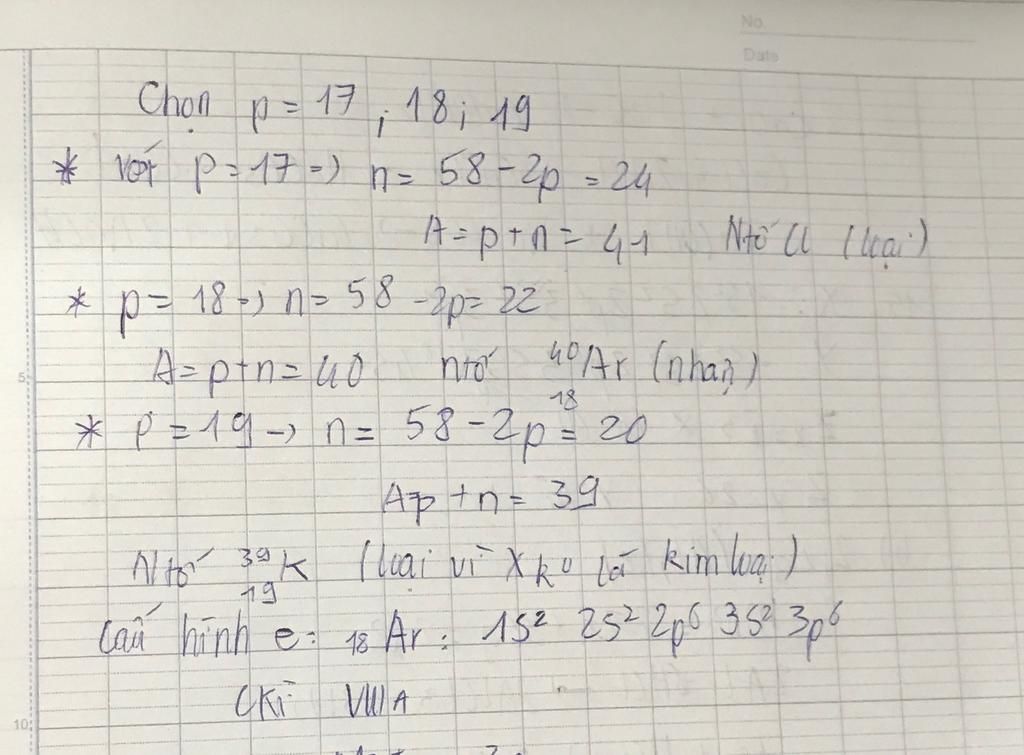 No.
Date
Chọn p = 17 ; 18 ; 19
* với p = 17 => n = 58 - 2p = 24
A = p + n = 41 Ntố Cl (loại)
* p = 18 => n = 58 - 2p = 22
5
A = p + n = 40 ntố ⁴⁰₁₈Ar (nhận)
* p = 19 -> n = 58 - 2p = 20
A=p + n = 39
Ntố ³⁹₁₉K (loại vì X ko là kim loại)
Cấu hình e: ₁₈Ar: 1s² 2s² 2p⁶ 3s² 3p⁶
CKì VIIIA
10